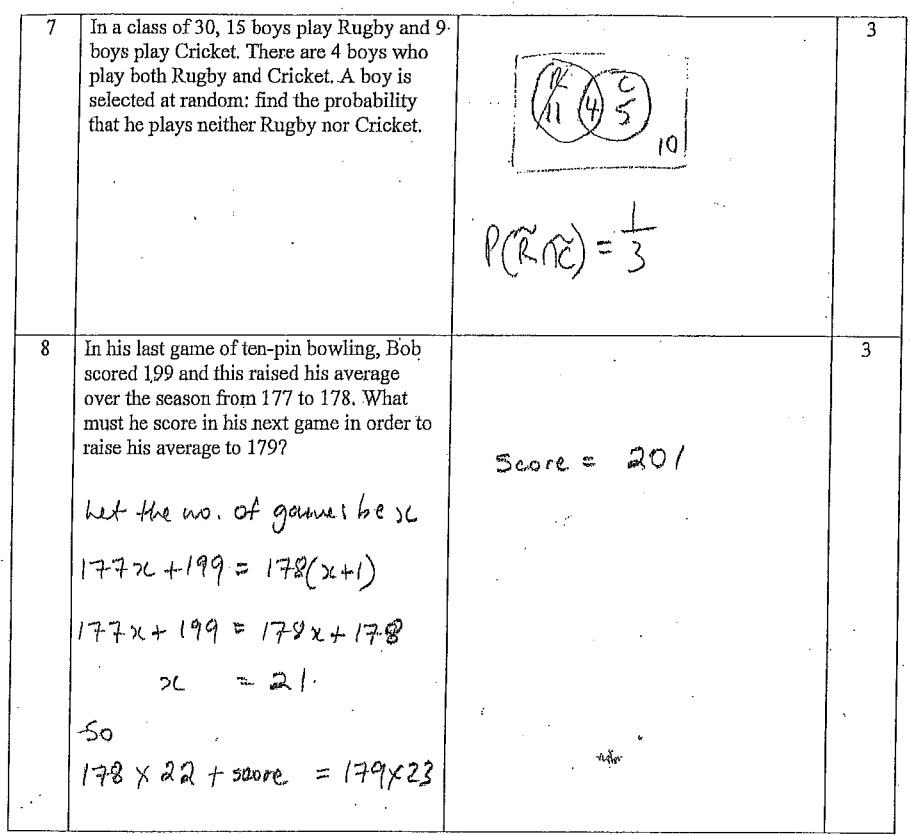 7
In a class of 30, 15 boys play Rugby and 9
boys play Cricket. There are 4 boys who
play both Rugby and Cricket. A boy is
selected at random: find the probability
that he plays neither Rugby nor Cricket.
R C
11 4 5
10
P(R̃ ∩ C̃) = 1/3
3
8
In his last game of ten-pin bowling, Bob
scored 199 and this raised his average
over the season from 177 to 178. What
must he score in his next game in order to
raise his average to 179?
Let the no. of games be x
177x + 199 = 178(x+1)
177x + 199 = 178x + 178
x = 21.
So
178 × 22 + score = 179×23
Score = 201
3